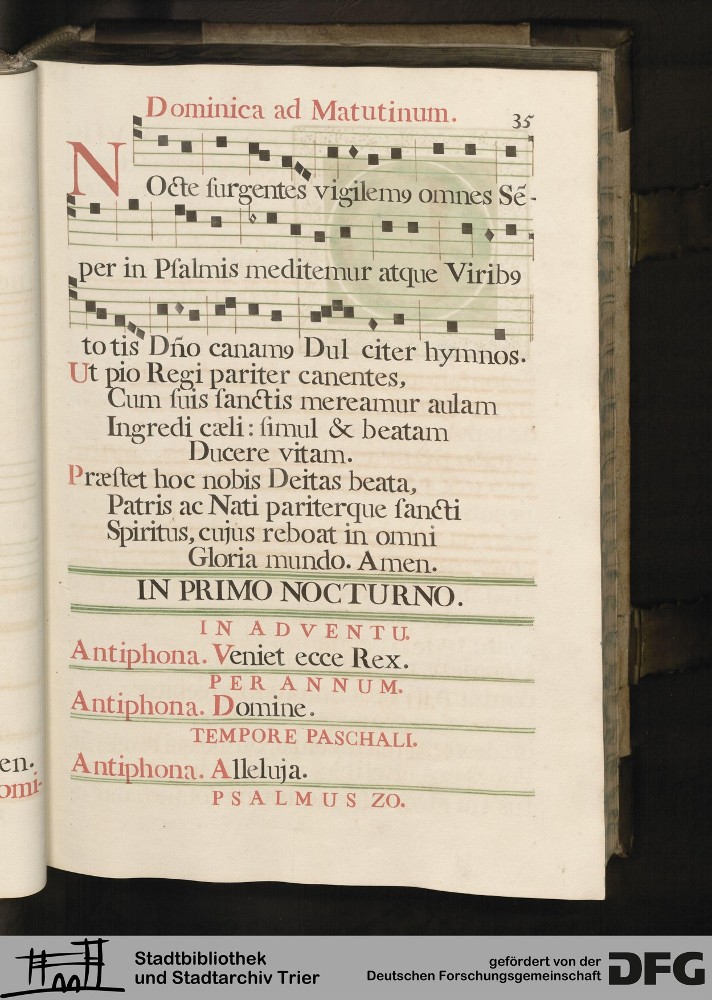 Dominica ad Matutinum.
35
NOcte ſurgentes vigilemꝯ omnes Sẽ-
per in Pſalmis meditemur atque Viribꝯ
to tis Dño canamꝯ Dul citer hymnos.
Ut pio Regi pariter canentes,
Cum ſuis ſanctis mereamur aulam
Ingredi cæli: ſimul & beatam
Ducere vitam.
Præſtet hoc nobis Deitas beata,
Patris ac Nati pariterque ſancti
Spiritus, cujus reboat in omni
Gloria mundo. Amen.
IN PRIMO NOCTURNO.
IN ADVENTU.
Antiphona. Veniet ecce Rex.
PER ANNUM.
Antiphona. Domine.
TEMPORE PASCHALI.
Antiphona. Alleluja.
PSALMUS ZO.
en.
omi-
Stadtbibliothek
und Stadtarchiv Trier
gefördert von der
Deutschen Forschungsgemeinschaft
DFG